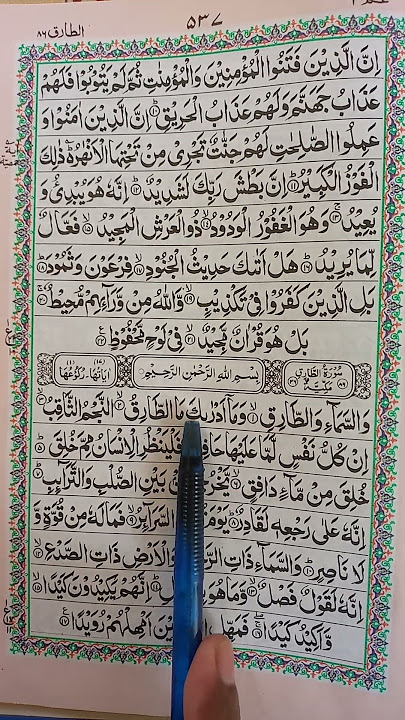 الطارق ٨٦
٥٣٧
اِنَّ الَّذِيْنَ فَتَنُوا الْمُؤْمِنِيْنَ وَالْمُؤْمِنٰتِ ثُمَّ لَمْ يَتُوْبُوْا فَلَهُمْ
عَذَابُ جَهَنَّمَ وَلَهُمْ عَذَابُ الْحَرِيْقِ ۱۰ اِنَّ الَّذِيْنَ اٰمَنُوْا وَ
عَمِلُوا الصّٰلِحٰتِ لَهُمْ جَنّٰتٌ تَجْرِيْ مِنْ تَحْتِهَا الْاَنْهٰرُ ذٰلِكَ
الْفَوْزُ الْكَبِيْرُ ۱۱ اِنَّ بَطْشَ رَبِّكَ لَشَدِيْدٌ ۱۲ اِنَّهٗ هُوَ يُبْدِئُ وَ
يُعِيْدُ ۱۳ وَهُوَ الْغَفُوْرُ الْوَدُوْدُ ۱۴ ذُو الْعَرْشِ الْمَجِيْدُ ۱۵ فَعَّالٌ
لِّمَا يُرِيْدُ ۱۶ هَلْ اَتٰىكَ حَدِيْثُ الْجُنُوْدِ ۱۷ فِرْعَوْنَ وَثَمُوْدَ ۱۸
بَلِ الَّذِيْنَ كَفَرُوْا فِيْ تَكْذِيْبٍ ۱۹ وَّاللّٰهُ مِنْ وَّرَآئِهِمْ مُّحِيْطٌ ۲۰
بَلْ هُوَ قُرْاٰنٌ مَّجِيْدٌ ۲۱ فِيْ لَوْحٍ مَّحْفُوْظٍ ۲۲
سُوْرَةُ الطَّارِقِ مَكِّيَّةٌ بِسْمِ اللّٰهِ الرَّحْمٰنِ الرَّحِيْمِ اٰيَاتُهَا ۱۷ رُكُوْعُهَا ۱
وَالسَّمَآءِ وَالطَّارِقِ ۱ وَمَآ اَدْرٰىكَ مَا الطَّارِقُ ۲ النَّجْمُ الثَّاقِبُ ۳
اِنْ كُلُّ نَفْسٍ لَّمَّا عَلَيْهَا فَلْيَنْظُرِ الْاِنْسَانُ مِمَّ خُلِقَ ۵
خُلِقَ مِنْ مَّآءٍ دَافِقٍ ۶ يَّخْرُجُ بَيْنِ الصُّلْبِ وَالتَّرَآئِبِ ۷
اِنَّهٗ عَلٰى رَجْعِهٖ لَقَادِرٌ ۸ يَوْمَ السَّرَآئِرُ ۹ فَمَا لَهٗ مِنْ قُوَّةٍ وَّ
لَا نَاصِرٍ ۱۰ وَالسَّمَآءِ ذَاتِ وَالْاَرْضِ ذَاتِ الصَّدْعِ ۱۲
اِنَّهٗ لَقَوْلٌ فَصْلٌ ۱۳ وَّمَا هُوَ اِنَّهُمْ يَكِيْدُوْنَ كَيْدًا ۱۵
وَّاَكِيْدُ كَيْدًا ۱۶ فَمَهِّلِ اَمْهِلْهُمْ رُوَيْدًا ۱۷